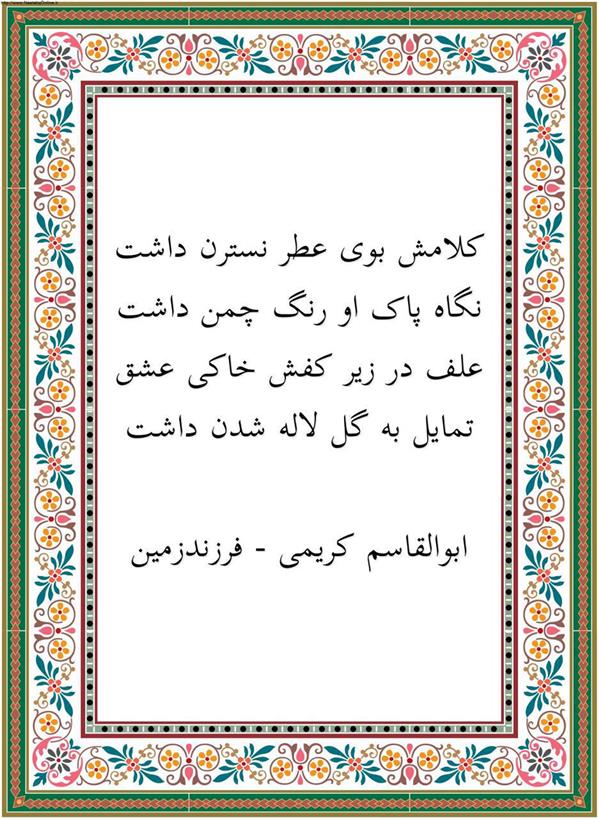 کلامش بوی عطر نسترن داشت
نگاه پاک او رنگ چمن داشت
علف در زیر کفش خاکی عشق
تمایل به گل لاله شدن داشت
ابوالقاسم کریمی - فرزندزمین